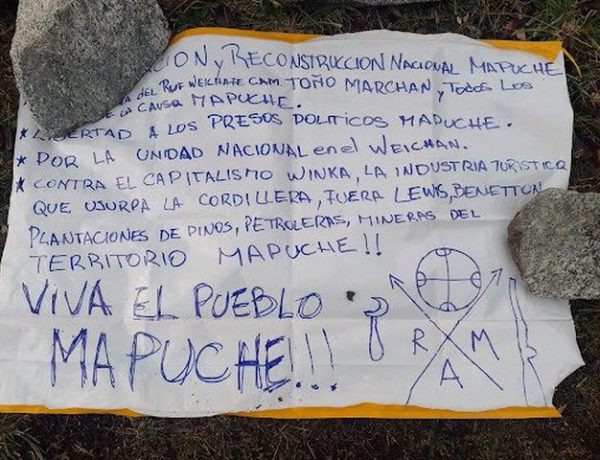 ACION y RECONSTRUCCION NACIONAL MAPUCHE
DEL PU WEICHAFE CAM. TOÑO MARCHAN, y TODOS LOS
LA CAUSA MAPUCHE.
* LIBERTAD A LOS PRESOS POLITICOS MAPUCHE.
* POR LA UNIDAD NACIONAL en el WEICHAN.
* CONTRA EL CAPITALISMO WINKA, LA INDUSTRIA TURISTICA
QUE USURPA LA CORDILLERA, FUERA LEWIS, BENETTON,
PLANTACIONES DE PINOS, PETROLERAS, MINERAS DEL
TERRITORIO MAPUCHE!!
VIVA EL PUEBLO
MAPUCHE!!!
R M
A